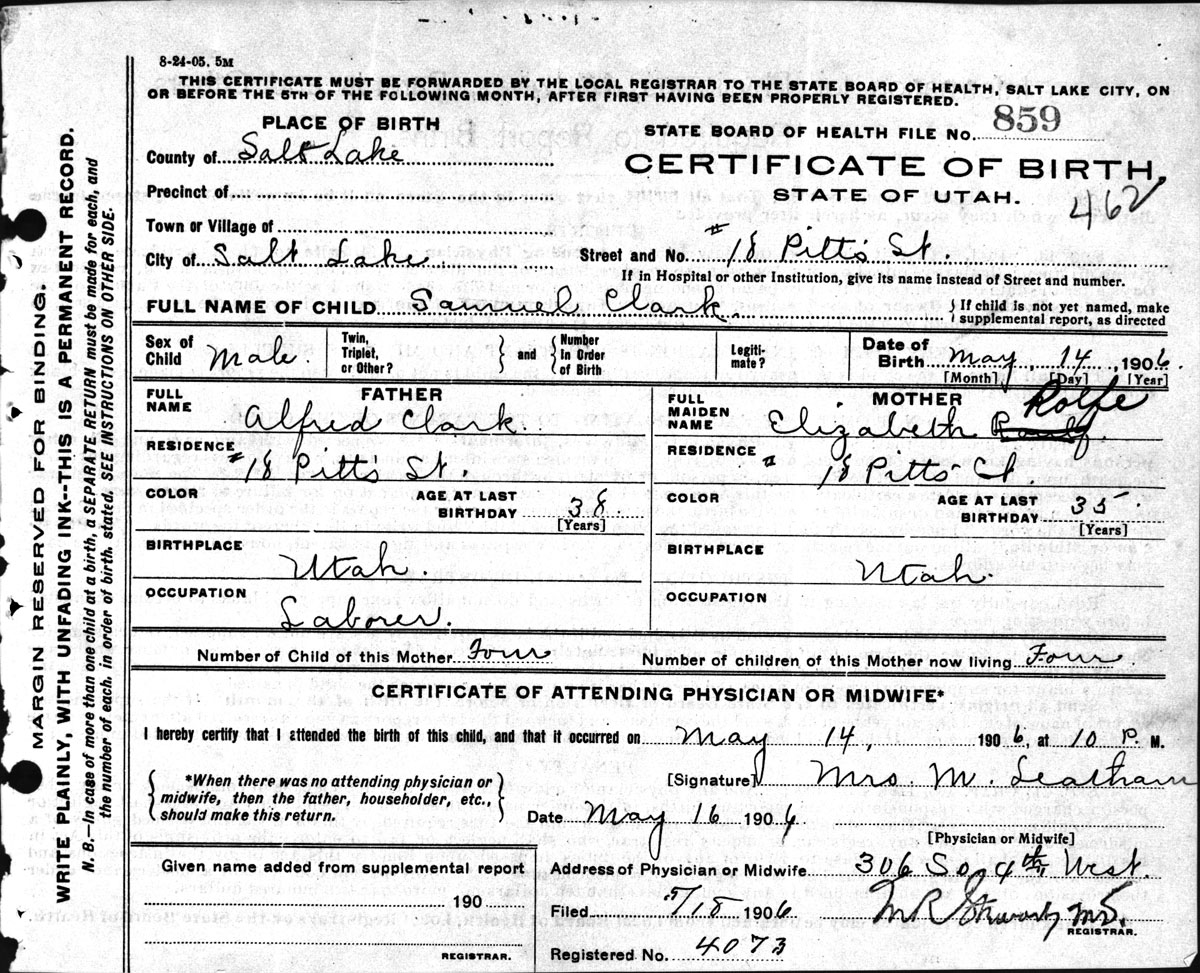 8-24-05. 5M
THIS CERTIFICATE MUST BE FORWARDED BY THE LOCAL REGISTRAR TO THE STATE BOARD OF HEALTH, SALT LAKE CITY, ON
OR BEFORE THE 5TH OF THE FOLLOWING MONTH, AFTER FIRST HAVING BEEN PROPERLY REGISTERED.
PLACE OF BIRTH
STATE BOARD OF HEALTH FILE No. 859
County of Salt Lake
CERTIFICATE OF BIRTH,
Precinct of
STATE OF UTAH. 462
Town or Village of
City of Salt Lake Street and No. # 18 Pitt's St.
If in Hospital or other Institution, give its name instead of Street and number.
FULL NAME OF CHILD Samuel Clark. {If child is not yet named, make supplemental report, as directed
Sex of Child Male Twin, Triplet, or Other? } and { Number in Order of Birth Legiti-mate? Date of Birth May, 14, 1906.
[Month] [Day] [Year]
FATHER
FULL NAME Alfred Clark.
RESIDENCE # 18 Pitt's St.
COLOR AGE AT LAST BIRTHDAY 38
[Years]
BIRTHPLACE
Utah.
OCCUPATION
Laborer.
MOTHER
FULL MAIDEN NAME Elizabeth Rolfe
RESIDENCE # 18 Pitts Ct
COLOR AGE AT LAST BIRTHDAY 35
[Years]
BIRTHPLACE
Utah.
OCCUPATION
Number of Child of this Mother Four Number of children of this Mother now living Four
CERTIFICATE OF ATTENDING PHYSICIAN OR MIDWIFE*
I hereby certify that I attended the birth of this child, and that it occurred on May 14, 1906, at 10 P. M.
{*When there was no attending physician or midwife, then the father, householder, etc., should make this return.}
[Signature] Mrs. M. Leatham
Date May 16 1906
[Physician or Midwife]
Given name added from supplemental report
190
REGISTRAR.
Address of Physician or Midwife 306 So. 4th West.
Filed 5/18 1906 M R Stewart M.D.
REGISTRAR.
Registered No. 4073
MARGIN RESERVED FOR BINDING.
WRITE PLAINLY, WITH UNFADING INK--THIS IS A PERMANENT RECORD.
N. B.—In case of more than one child at a birth, a SEPARATE RETURN must be made for each, and
the number of each, in order of birth, stated. SEE INSTRUCTIONS ON OTHER SIDE.